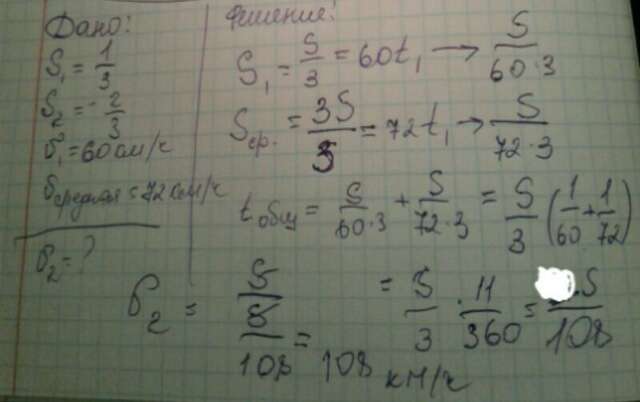 Дано:
S₁ = 1/3
S₂ = 2/3
υ₁ = 60 км/ч
υсредняя = 72 км/ч
υ₂ = ?
Решение:
S₁ = S/3 = 60t₁ → S/(60·3)
Sср. = 3S/3 = 72t₁ → S/(72·3)
tобщ = S/(60·3) + S/(72·3) = S/3 (1/60 + 1/72)
= S/3 · 11/360 = .S/108
υ₂ = S/(S/108) = 108 км/ч